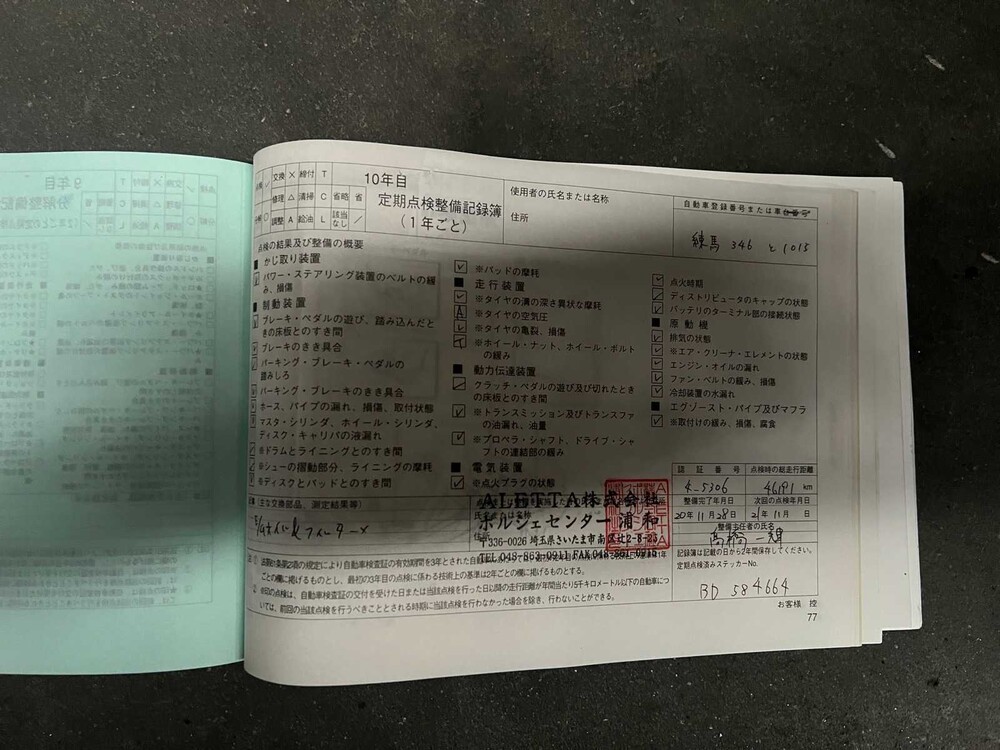 10年目
定期点検整備記録簿
(1年ごと)
交換 × 締付 T
修理 △ 清掃 C 省略 省
調整 A 給油 L 該当なし ／
使用者の氏名または名称
住所
自動車登録番号または車台番号
練馬 346 と 1015
点検の結果及び整備の概要
■ かじ取り装置
パワー・ステアリング装置のベルトの緩
み、損傷
■ 制動装置
ブレーキ・ペダルの遊び、踏み込んだと
きの床板とのすき間
ブレーキのきき具合
パーキング・ブレーキ・ペダルの
踏みしろ
パーキング・ブレーキのきき具合
ホース、パイプの漏れ、損傷、取付状態
マスタ・シリンダ、ホイール・シリンダ、
ディスク・キャリパの液漏れ
※ドラムとライニングとのすき間
※シューの摺動部分、ライニングの摩耗
※ディスクとパッドとのすき間
※パッドの摩耗
■ 走行装置
※タイヤの溝の深さ異状な摩耗
※タイヤの空気圧
※タイヤの亀裂、損傷
※ホイール・ナット、ホイール・ボルト
の緩み
■ 動力伝達装置
クラッチ・ペダルの遊び及び切れたとき
の床板とのすき間
※トランスミッション及びトランスファ
の油漏れ、油量
※プロペラ・シャフト、ドライブ・シャ
フトの連結部の緩み
■ 電気装置
※点火プラグの状態
点火時期
ディストリビュータのキャップの状態
バッテリのターミナル部の接続状態
■ 原動機
排気の状態
※エア・クリーナ・エレメントの状態
エンジン・オイルの漏れ
ファン・ベルトの緩み、損傷
冷却装置の水漏れ
■ エグゾースト・パイプ及びマフラ
※取付けの緩み、損傷、腐食
(主な交換部品、測定結果等)
ALETTA株式会社
ポルシェセンター 浦和
〒336-0026 埼玉県さいたま市南区辻2-8-25
TEL 048-863-0911 FAX
認証番号
4-5306
点検時の総走行距離
km
整備完了年月日
20年11月28日
次回の点検年月日
21年11月 日
整備主任者の氏名
高橋
記録簿は記載の日から2年間保存してください。
定期点検済みステッカーNo.
BD 584664
ごとの欄に掲げるものとし、最初の3年目の点検に係わる技術上の基準は2年ごとの欄に掲げるものとする。
前回の点検は、自動車検査証の交付を受けた日または当該点検を行った日以降の走行距離が年間当り5千キロメートル以下の自動車につ
いては、前回の当該点検を行うべきこととされる時期に当該点検を行わなかった場合を除き、行わないことができる。
お客様 控
77